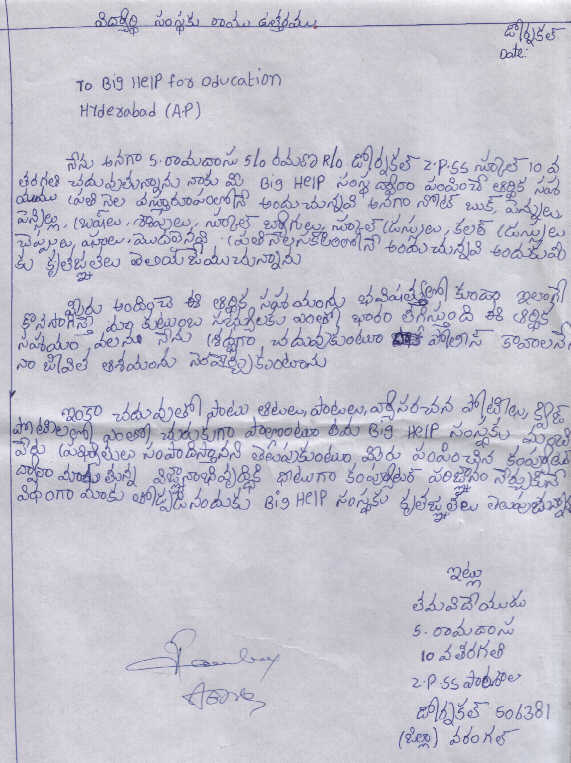 విద్యార్థి సంస్థకు రాయు ఉత్తరము.
డోర్నకల్
Date:
To Big HELP for Education
Hyderabad (A.P)
నేను అనగా S. రామదాసు S/o రమణ R/o డోర్నకల్ Z.P.SS స్కూల్ 10 వ
తరగతి చదువుతున్నాను నాకు మీ Big HELP సంస్థ ద్వారా పంపించే ఆర్థిక సహ
యము ప్రతి నెల వస్తూరూపంలోనే అందుచున్నవి అనగా నోట్ బుక్, పెన్నులు,
పెన్సిల్లు, బ్రష్‌లు, సోపులు, స్కూల్ బ్యాగులు, స్కూల్ డ్రస్సులు, కలర్ డ్రస్సులు
చెప్పులు, షూలు, మొదలైనవి ప్రతి నెల సకాలంలోనే అందుచున్నవి అందుకుమీ
కు కృతజ్ఞతలు తెలియజేయుచున్నాను
మీరు అందించే ఈ ఆర్థిక సహాయంను భవిష్యత్తులో కూడా ఇలాగే
కొనసాగిస్తే మా కుటుంబ సభ్యులకు ఎంతో భారం తగ్గిస్తుంది ఈ ఆర్థిక
సహాయం వలన నేను శ్రద్ధగా చదువుకుంటూ పోలీస్ కావాలనే
నా జీవిత ఆశయంను నెరవేర్చుకుంటాను
ఇంకా చదువుతో పాటు ఆటలు, పాటలు, వ్యాసరచన పోటీలు, క్విజ్
పోటీలలో ఎంతో చురుకుగా పాల్గొంటూ Big HELP సంస్థకు మంచి
పేరు ప్రఖ్యాతులు సంపాదిస్తానని తెలుపుకుంటూ మీరు పంపించిన కంప్యూటర్
ద్వారా మాకున్న విజ్ఞానాభివృద్ధికి దీటుగా కంప్యూటర్ పరిజ్ఞానం నేర్చుకునే
విధంగా మాకు తోడ్పడినందుకు Big HELP సంస్థకు కృతజ్ఞతలు తెలుపుతున్నా
ఇట్లు
తమవిదేయుడు
S. రామదాసు
10 వ తరగతి
Z.P.SS పాఠశాల
డోర్నకల్ 506381
(జిల్లా) వరంగల్